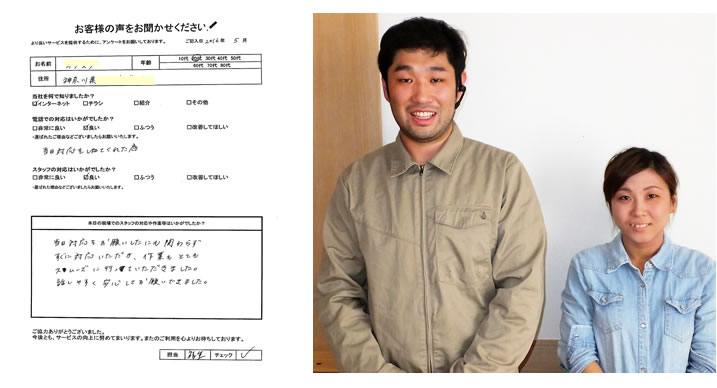 お客様の声をお聞かせください。
より良いサービスを提供するために、アンケートをお願いしております。 ご記入日 2016年 5月
お名前 年齢 10代 20代 30代 40代 50代
60代 70代 80代
住所 神奈川県
当社を何で知りましたか?
☑インターネット □チラシ □紹介 □その他
電話での対応はいかがでしたか?
□非常に良い ☑良い □ふつう □改善してほしい
・選ばれたご理由などございましたらお願いいたします。
当日対応をしてくれた為
スタッフの対応はいかがでしたか?
□非常に良い ☑良い □ふつう □改善してほしい
・選ばれた理由などございましたらお願いいたします。
本日の現場でのスタッフの対応や作業等はいかがでしたか?
当日対応をお願いしたにも関わらず
すぐに対応いただき、作業もとても
スムーズに行っていただきました。
話しやすく安心してお願いできました。
ご協力ありがとうございました。
今後とも、サービスの向上に努めてまいります。またのご利用を心よりお待ちしております。
担当 チェック ✓